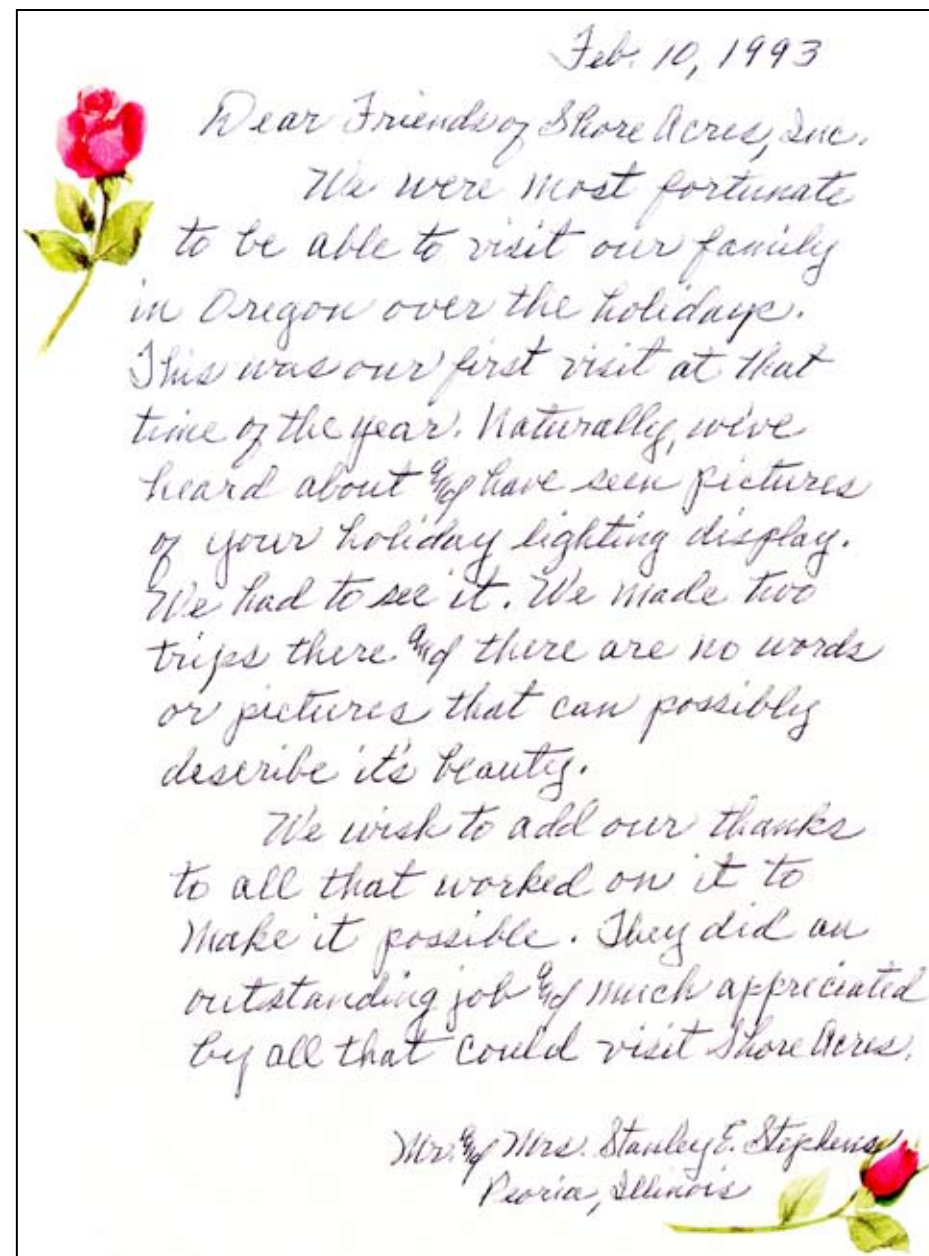 Feb. 10, 1993
Dear Friends of Shore Acres, Inc.
We were most fortunate
to be able to visit our family
in Oregon over the holidays.
This was our first visit at that
time of the year. Naturally, we've
heard about and have seen pictures
of your holiday lighting display.
We had to see it. We made two
trips there and there are no words
or pictures that can possibly
describe it's beauty.
We wish to add our thanks
to all that worked on it to
make it possible. They did an
outstanding job and much appreciated
by all that could visit Shore Acres.
Mr. and Mrs. Stanley E. Stephens
Peoria, Illinois